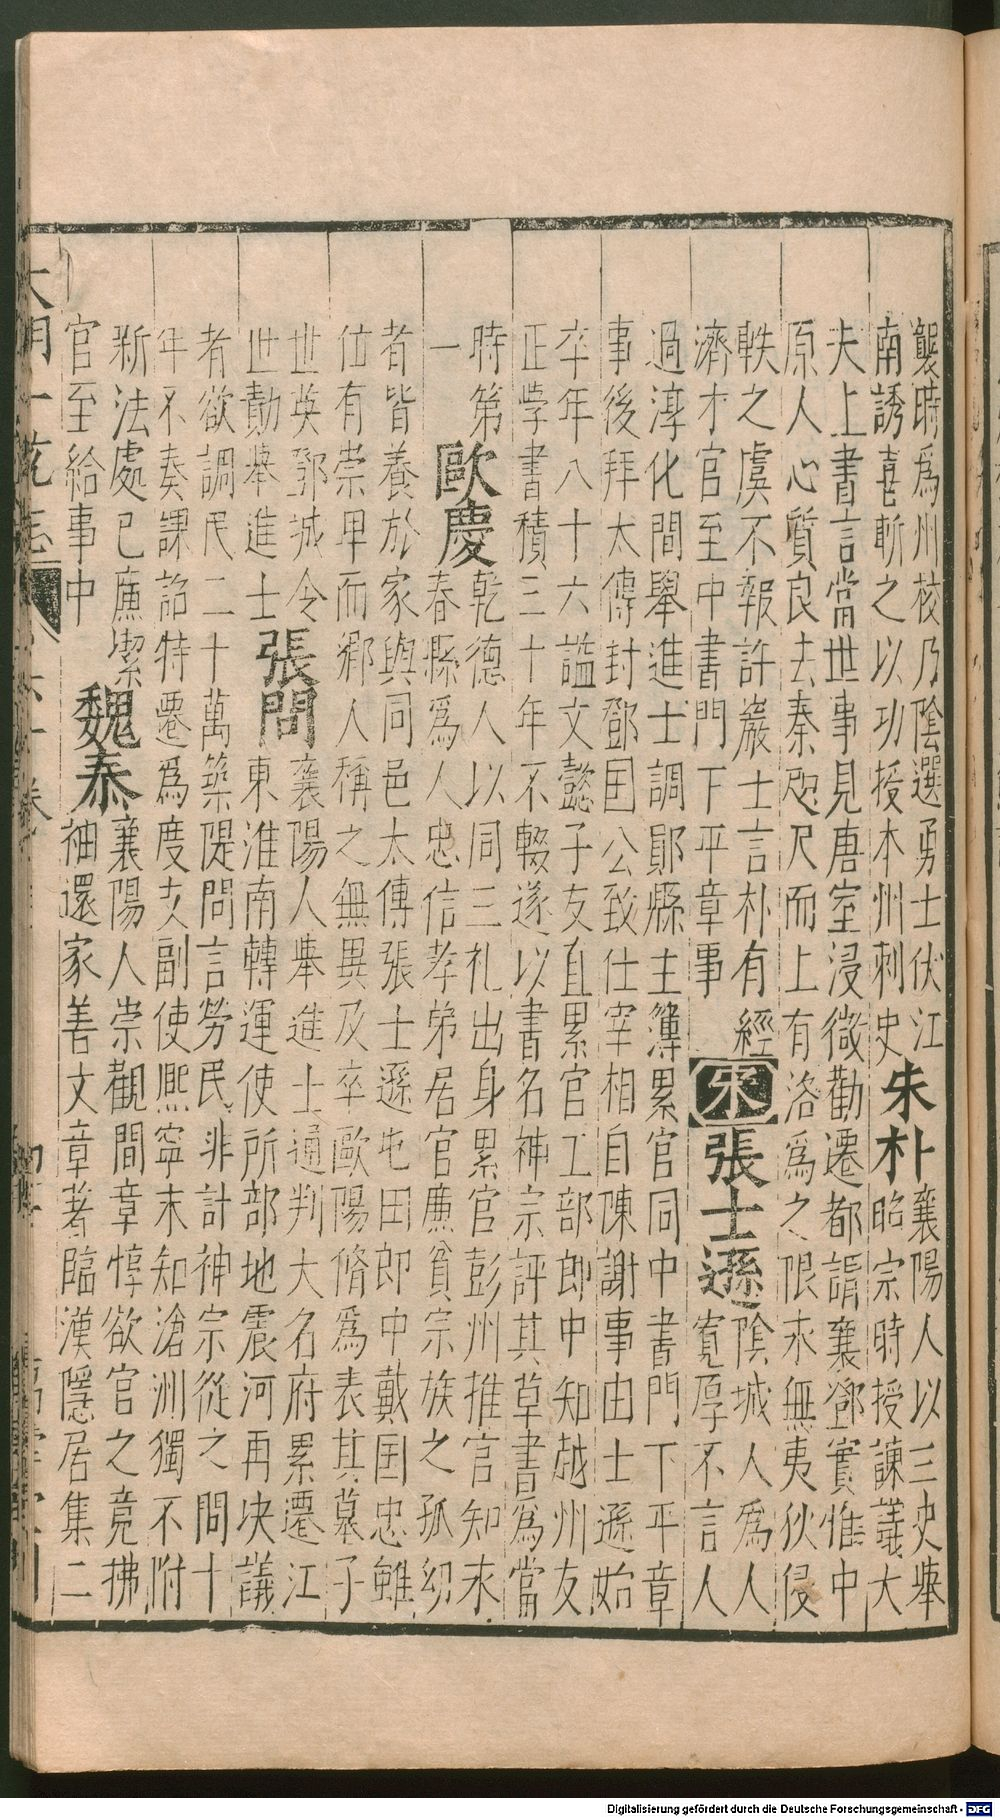 襲時爲州校乃陰選勇士伏江
南誘莊斬之以功授本州刺史
朱朴
襄陽人以三史舉
昭宗時授諫議大
夫上書言當世事見唐室浸微勸遷都謂襄鄧實惟中
原人心質良去秦咫尺而上有洛爲之限永無夷狄侵
軼之虞不報許巖士言朴有經
濟才官至中書門下平章事
宋
張士遜
陰城人爲人
寬厚不言人
過淳化間舉進士調鄖縣主簿累官同中書門下平章
事後拜太傅封鄧国公致仕宰相自陳謝事由士遜始
卒年八十六謚文懿子友直累官工部郎中知越州友
正學書積三十年不輟遂以書名神宗評其草書爲當
時第
一
歐慶
乾德人以同三礼出身累官彭州推官知永
春縣爲人忠信孝弟居官廉貧宗族之孤幼
者皆養於家與同邑太傅張士遜屯田郎中戴国忠雖
位有崇卑而鄉人稱之無異及卒歐陽脩爲表其墓子
世英鄧城令
世勣舉進士
張問
襄陽人舉進士通判大名府累遷江
東淮南轉運使所部地震河再决議
者欲調民二十萬築隄問言勞民非計神宗從之問十
年不奏課詔特遷爲度支副使熙寧末知滄洲獨不附
新法處已廉潔
官至給事中
魏泰
襄陽人崇觀間章惇欲官之竟拂
袖還家善文章著臨漢隱居集二
大明一統志
Digitalisierung gefördert durch die Deutsche Forschungsgemeinschaft - DFG